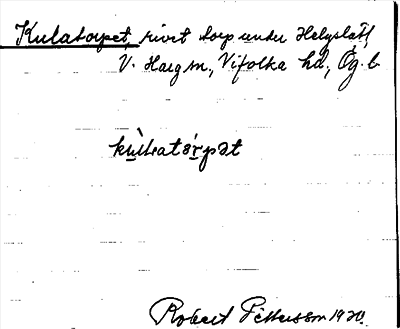 Kulatorpet, rivet torp under Helgslätt,
V. Harg sn, Vifolka hd, Ög. l.
Robert Pettersson 1920.